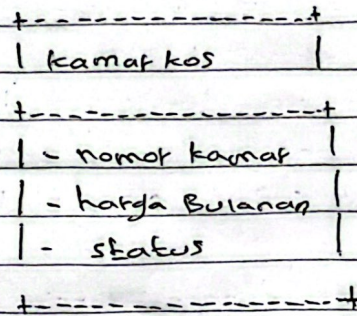 +----------------+
| kamar kos |
+----------------+
| - nomor kamar |
| - harga Bulanan |
| - status |
+----------------+